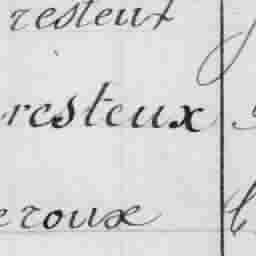 resteux
resteux
eroux